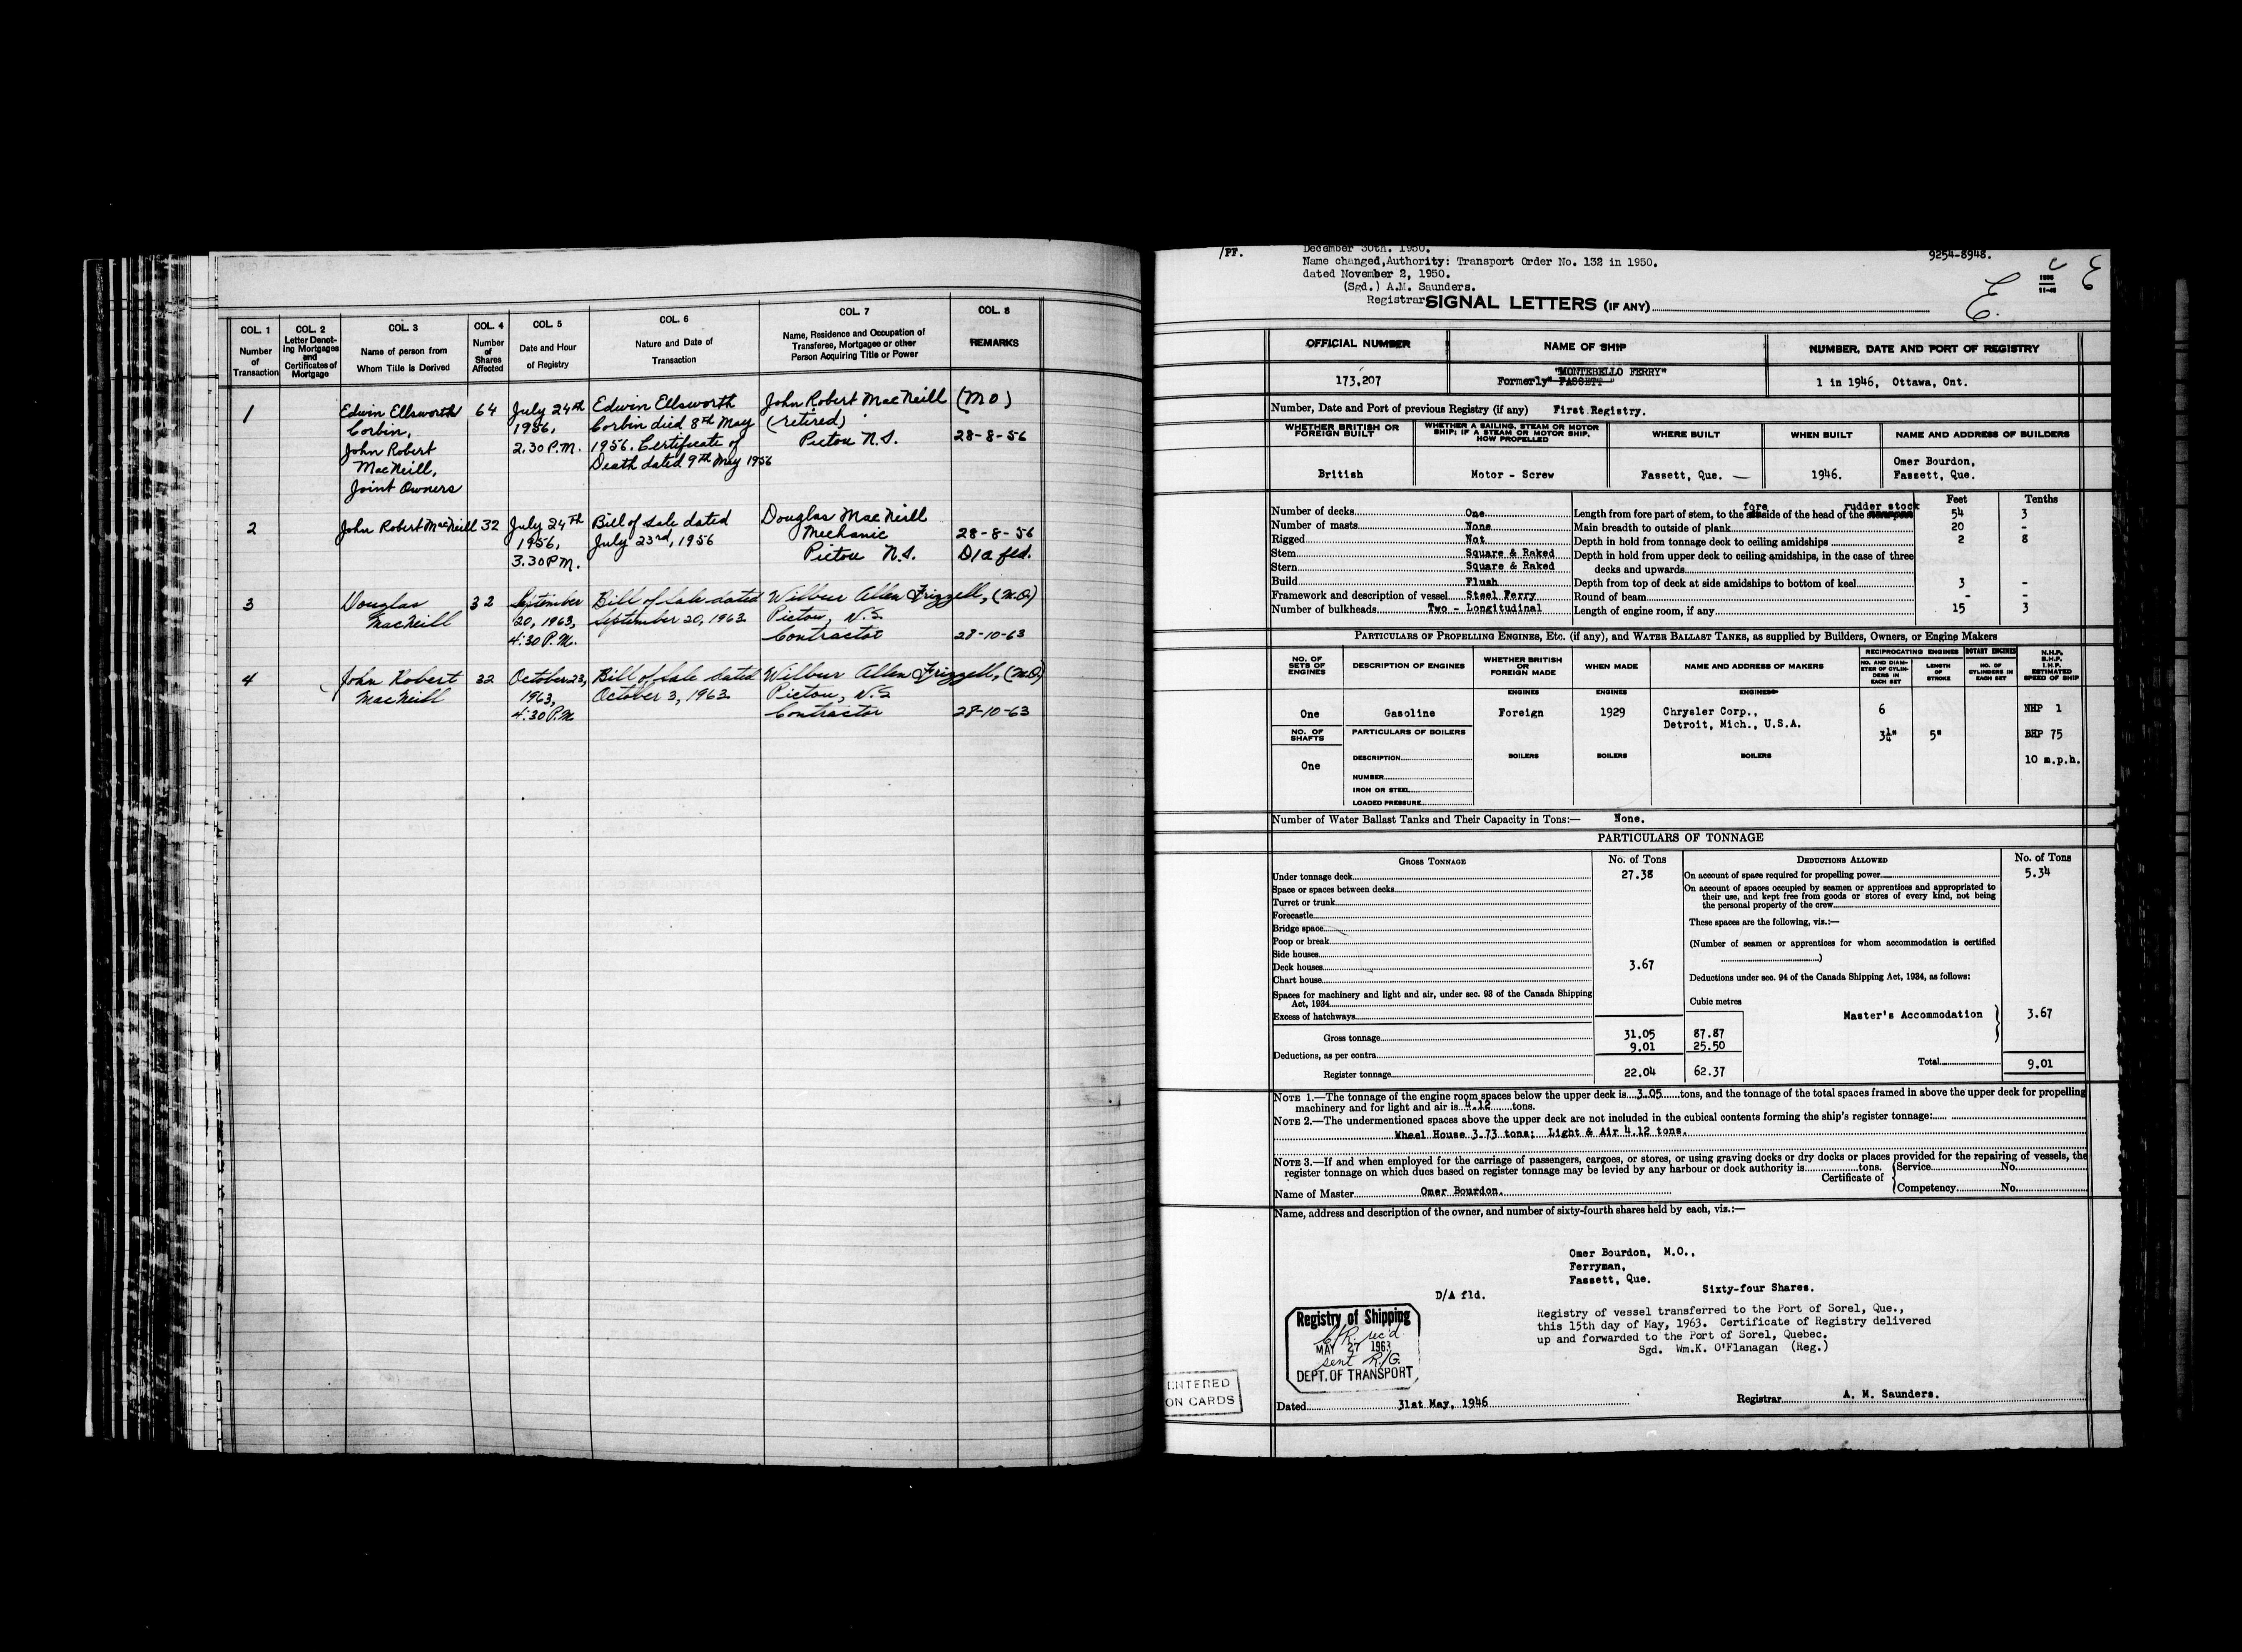 COL. 1
Number
of
Transaction
COL. 2
Letter Denot-
ing Mortgages
and
Certificates of
Mortgage
COL. 3
Name of person from
Whom Title is Derived
COL. 4
Number
of
Shares
Affected
COL. 5
Date and Hour
of Registry
COL. 6
Nature and Date of
Transaction
COL. 7
Name, Residence and Occupation of
Transferee, Mortgagee or other
Person Acquiring Title or Power
COL. 8
REMARKS
1 Edwin Ellsworth 64 July 24th Edwin Ellsworth John Robert MacNeill (M O)
Corbin, 1956, Corbin died 8th May (retired)
John Robert 2.30 P.M. 1956. Certificate of Pictou N.S. 28-8-56
MacNeill, Death dated 9th May 1956
Joint Owners
2 John Robert MacNeill 32 July 24th Bill of Sale dated Douglas MacNeill
1956, July 23rd, 1956 Mechanic 28-8-56
3.30 P.M. Pictou N.S. D/a fld.
3 Douglas 32 September Bill of Sale dated Wilbur Allen Frizzell, (M.O)
MacNeill 20, 1963, September 20, 1963 Pictou, N.S
4:30 P.M. Contractor 28-10-63
4 John Robert 32 October 23, Bill of Sale dated Wilbur Allen Frizzell, (M.O)
MacNeill 1963, October 3, 1963 Pictou, N.S
4:30 P.M. Contractor 28-10-63
/PF.
December 30th. 1950.
9254-8948.
Name changed, Authority: Transport Order No. 132 in 1950.
dated November 2, 1950.
(Sgd.) A.M. Saunders.
Registrar
SIGNAL LETTERS (IF ANY)
E.
OFFICIAL NUMBER NAME OF SHIP NUMBER, DATE AND PORT OF REGISTRY
"MONTEBELLO FERRY"
173,207 Formerly "FASSETT" 1 in 1946, Ottawa, Ont.
Number, Date and Port of previous Registry (if any) First Registry.
WHETHER BRITISH OR
FOREIGN BUILT
WHETHER A SAILING, STEAM OR MOTOR
SHIP; IF A STEAM OR MOTOR SHIP,
HOW PROPELLED
WHERE BUILT WHEN BUILT NAME AND ADDRESS OF BUILDERS
British Motor - Screw Fassett, Que. — 1946. Omer Bourdon,
Fassett, Que.
Feet Tenths
fore rudder stock
Number of decks One Length from fore part of stem, to the side of the head of the 54 3
Number of masts None Main breadth to outside of plank 20 -
Rigged Not Depth in hold from tonnage deck to ceiling amidships 2 8
Stem Square & Raked Depth in hold from upper deck to ceiling amidships, in the case of three
Stern Square & Raked decks and upwards
Build Flush Depth from top of deck at side amidships to bottom of keel 3 -
Framework and description of vessel Steel Ferry Round of beam - -
Number of bulkheads Two - Longitudinal Length of engine room, if any 15 3
PARTICULARS OF PROPELLING ENGINES, ETC. (if any), and WATER BALLAST TANKS, as supplied by Builders, Owners, or Engine Makers
NO. OF
SETS OF
ENGINES
DESCRIPTION OF ENGINES
WHETHER BRITISH
OR
FOREIGN MADE
WHEN MADE
NAME AND ADDRESS OF MAKERS
RECIPROCATING ENGINES
NO. AND DIAM-
ETER OF CYLIN-
DERS IN
EACH SET
LENGTH
OF
STROKE
ROTARY ENGINES
NO. OF
CYLINDERS IN
EACH SET
N.H.P.
B.H.P.
I.H.P.
ESTIMATED
SPEED OF SHIP
ENGINES ENGINES ENGINES
One Gasoline Foreign 1929 Chrysler Corp., 6 NHP 1
Detroit, Mich., U.S.A.
NO. OF
SHAFTS
PARTICULARS OF BOILERS
3¼" 5" BHP 75
DESCRIPTION BOILERS BOILERS BOILERS 10 m.p.h.
One
NUMBER
IRON OR STEEL
LOADED PRESSURE
Number of Water Ballast Tanks and Their Capacity in Tons:— None.
PARTICULARS OF TONNAGE
GROSS TONNAGE No. of Tons DEDUCTIONS ALLOWED No. of Tons
Under tonnage deck 27.38 On account of space required for propelling power 5.34
Space or spaces between decks On account of spaces occupied by seamen or apprentices and appropriated to
Turret or trunk their use, and kept free from goods or stores of every kind, not being
Forecastle the personal property of the crew
Bridge space These spaces are the following, viz.:—
Poop or break (Number of seamen or apprentices for whom accommodation is certified
Side houses )
Deck houses 3.67
Chart house Deductions under sec. 94 of the Canada Shipping Act, 1934, as follows:
Spaces for machinery and light and air, under sec. 93 of the Canada Shipping
Act, 1934 Cubic metres
Excess of hatchways Master's Accommodation 3.67
Gross tonnage 31.05 87.87
Deductions, as per contra 9.01 25.50
Total 9.01
Register tonnage 22.04 62.37
NOTE 1.—The tonnage of the engine room spaces below the upper deck is 3.05 tons, and the tonnage of the total spaces framed in above the upper deck for propelling
machinery and for light and air is 4.12 tons.
NOTE 2.—The undermentioned spaces above the upper deck are not included in the cubical contents forming the ship's register tonnage:
Wheel House 3.73 tons; Light & Air 4.12 tons.
NOTE 3.—If and when employed for the carriage of passengers, cargoes, or stores, or using graving docks or dry docks or places provided for the repairing of vessels, the
register tonnage on which dues based on register tonnage may be levied by any harbour or dock authority is tons.
Certificate of
Service No.
Competency No.
Name of Master Omer Bourdon.
Name, address and description of the owner, and number of sixty-fourth shares held by each, viz.:—
Omer Bourdon, M.O.,
Ferryman,
Fassett, Que.
Sixty-four Shares.
D/A fld.
Registry of vessel transferred to the Port of Sorel, Que.,
this 15th day of May, 1963. Certificate of Registry delivered
up and forwarded to the Port of Sorel, Quebec.
Sgd. Wm.K. O'Flanagan (Reg.)
Registry of Shipping
C/R. rec'd
MAY 27 1963
sent R/G.
DEPT. OF TRANSPORT
ENTERED
ON CARDS
Dated 31st May, 1946 Registrar A. M. Saunders.